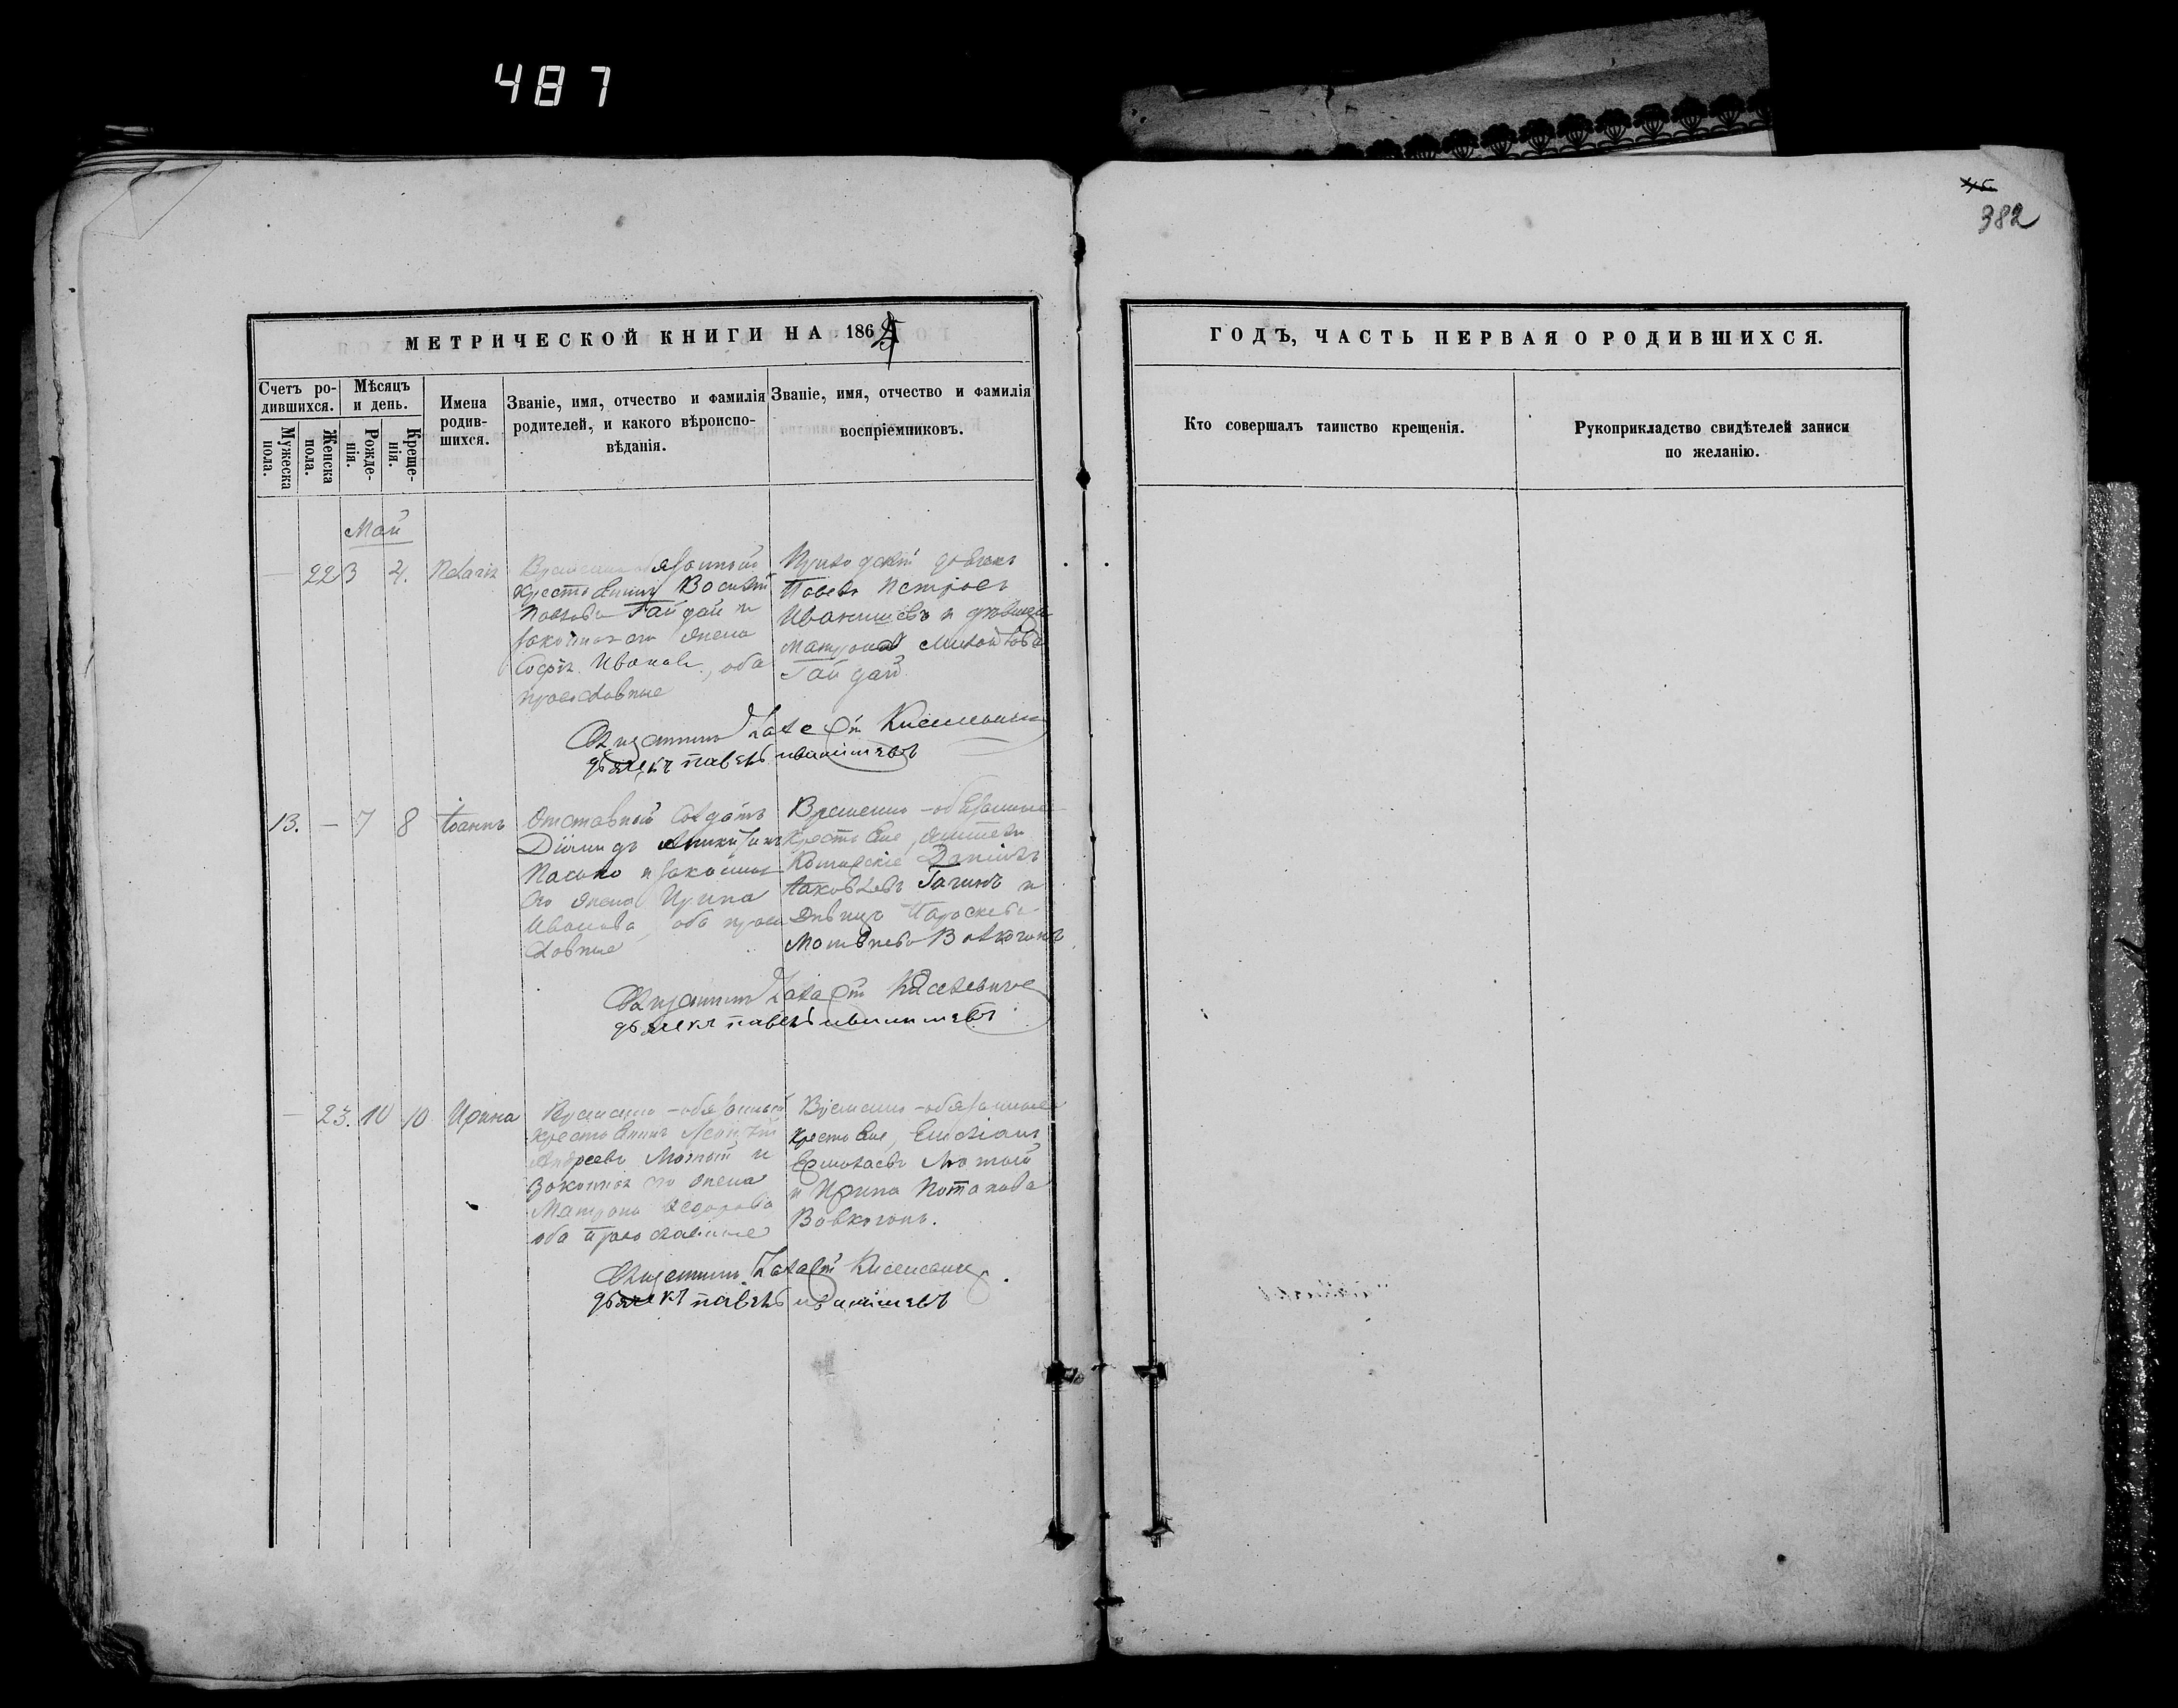 487
382
МЕТРИЧЕСКОЙ КНИГИ НА 1864
ГОДЪ, ЧАСТЬ ПЕРВАЯ О РОДИВШИХСЯ.
Счетъ родившихся.
Мужеска пола.
Женска пола.
Мѣсяцъ и день.
Рожденія.
Крещенія.
Имена родившихся.
Званіе, имя, отчество и фамилія
родителей, и какого вѣроиспо-
вѣданія.
Званіе, имя, отчество и фамилія
воспріемниковъ.
Кто совершалъ таинство крещенія.
Рукоприкладство свидѣтелей записи
по желанію.
Май
— 22 3 4. Пелагія
крестьянинъ Василій
Павловъ Гайдай и
законная его жена
Софія Иванова, оба
православные
Приходскій дьячекъ
Павелъ Петровъ
Иванишевъ и дѣвица
Матрона Михайлова
Гайдай
Священникъ Захарій
дьячекъ павелъ иванишевъ
13. — 7 8 Іоаннъ
Отставной солдатъ
Діомидъ
Пасько и законная
его жена Ирина
Иванова, оба право
славные
Временно-обязанные
крестьяне, жители
Даніилъ
Яковлевъ и
дѣвица Параскева
Матвѣева
Священникъ Захарій
дьячекъ павелъ иванишевъ
— 23. 10 10 Ирина
Временно-обязанный
крестьянинъ
Андреевъ Мотый и
Законная его жена
Матрона Ѳедорова
оба православные
Временно-обязанные
крестьяне, Емиліанъ
Ермолаевъ
и Ирина Потапова
Вовкогонъ.
Священникъ Захарій
дьячекъ павелъ иванишевъ